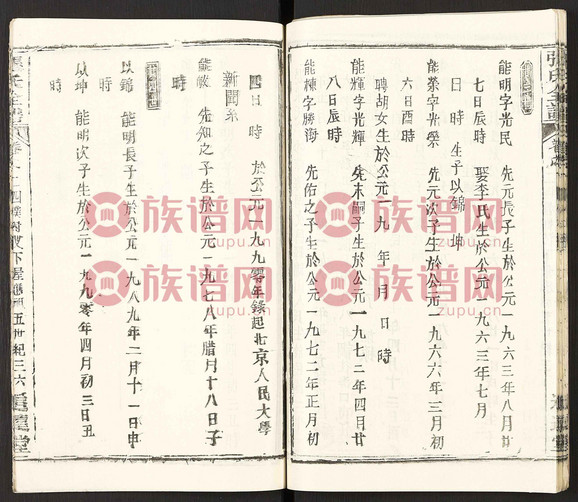 能明字光民　先元長子生於公元一九六三年八月廿
七日辰時　娶李氏生於公元一九六三年七月
日時　生子以錦　坤
能榮字光榮　先元次子生於公元一九六六年三月初
六日酉時
聘胡女生於公元一九　年　月　日　時
能輝字光輝　先末嗣子生於公元一九七二年四月廿
八日辰時
能棟字勝海　先佑之子生於公元一九七二年正月初
四日　時　於公元一九九零年錄起北京人民大學
新聞系
能　先知之子生於公元一九七八年腊月十八日子
時
以錦　能明長子生於公元一九八九年二月十一日
時
以坤　能明次子生於公元一九九零年四月初三日丑
時
張氏全譜
五世紀三六
族谱网
zupu.cn